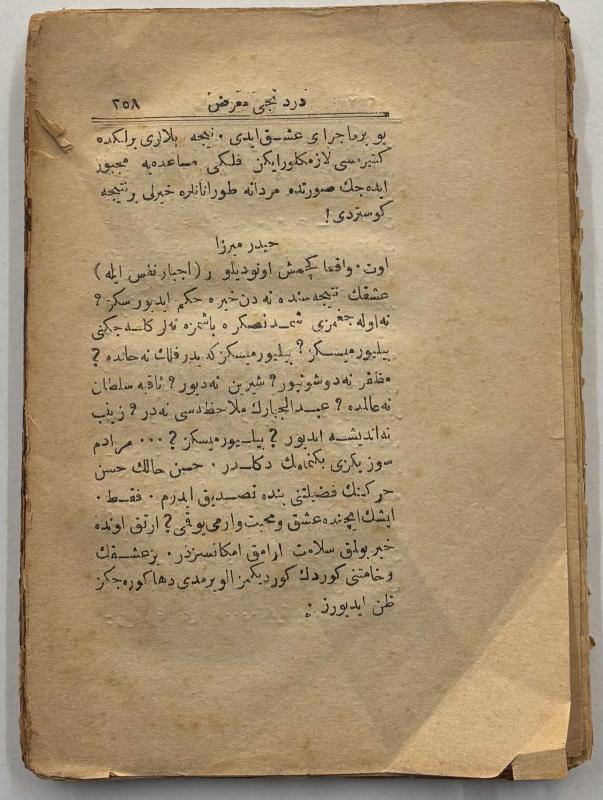 دردنجی معرض ٢٥٨
بو بر ماجرای عشق ایدی. نیجه بلالری برلکده
کتیرمسی لازمکلورایکن فلکی مساعده‌یه مجبور
ایده‌جك صورتده مردانه طورانانلره خیرلی بر نتیجه
کوستردی!
حیدر میرزا
اوت. واقعا کچمش اونودیلور (اجبار نفس ایله)
عشقك نتیجه سنده نه دن خیره حکم ایدیورسکز؟
نه اوله جغمزی شمدنصکره باشمزه نه‌لر کله‌جکنی
بیلیورمیسکز؟ بیلیورمیسکز که پدر فلك نه حالده؟
مظفر نه دوشونیور؟ شیرین نه دیور؟ ثاقبه سلطان
نه عالمده؟ عبدالجبارك ملاحظه‌سی نه در؟ زینب
نه اندیشه ایدیور؟ بیلیورمیسکز؟ ... مرادم
سوزیکزی بکنمامك دکلدر. حسن حالك حسن
حرکتك فضیلتنی بنده تصدیق ایدرم. فقط.
ایشك ایچنده عشق و محبت وارمی یوقمی؟ ارتق اونده
خیر بولمق سلامت ارامق امکانسزدر. بز عشقك
وخامتنی کوردك کوردیکمز الویرمدی دها کوره‌جکز
ظن ایدیورز.